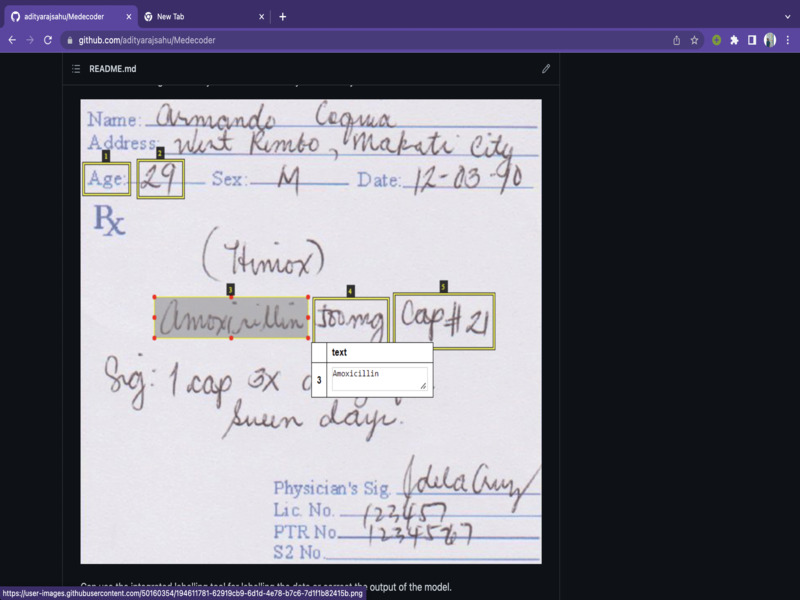 adityarajsahu/Medecoder
New Tab
github.com/adityarajsahu/Medecoder
README.md
Name: Armando Coqwa
Address: West Rembo, Makati City
1
2
Age: 29 Sex: M Date: 12-03-90
Rx
(Himox)
3
4
5
Amoxicillin 500mg Cap #21
text
3 Amoxicillin
Sig: 1 cap 3x
seven days.
Physician's Sig. Jdela Cruz
Lic. No. 123457
PTR No. 1234567
S2 No.
output of the model.
https://user-images.githubusercontent.com/50160354/194611781-62919cb9-6d1d-4e78-b7c6-7d1f1b82415b.png